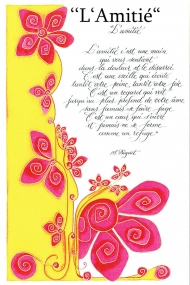 “L'Amitié“
L'amitié
L'amitié c'est une main
qui vous soutient
dans la douleur et le désarroi.
C'est une oreille qui écoute
tantôt votre peine, tantôt votre joie.
C'est un regard qui voit
jusqu'au plus profond de votre âme
sans jamais se faire juge.
C'est un cœur qui s'ouvre
et jamais ne se ferme
comme un refuge.